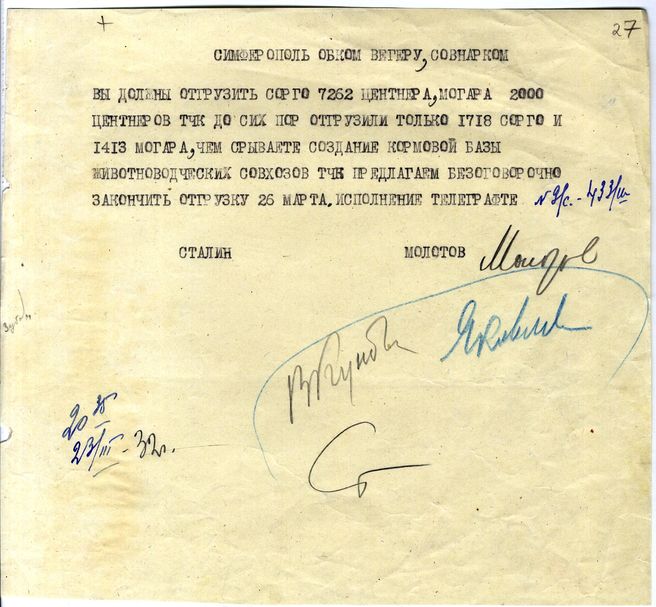 27
СИМФЕРОПОЛЬ ОБКОМ ВЕГЕРУ, СОВНАРКОМ
ВЫ ДОЛЖНЫ ОТГРУЗИТЬ СОРГО 7262 ЦЕНТНЕРА, МОГАРА 2000
ЦЕНТНЕРОВ ТЧК ДО СИХ ПОР ОТГРУЗИЛИ ТОЛЬКО 1718 СОРГО И
1413 МОГАРА, ЧЕМ СРЫВАЕТЕ СОЗДАНИЕ КОРМОВОЙ БАЗЫ
ЖИВОТНОВОДЧЕСКИХ СОВХОЗОВ ТЧК ПРЕДЛАГАЕМ БЕЗОГОВОРОЧНО
ЗАКОНЧИТЬ ОТГРУЗКУ 26 МАРТА. ИСПОЛНЕНИЕ ТЕЛЕГРАФТЕ
СТАЛИН МОЛОТОВ Молотов
Яковлев
20 35
23/III - 32г.